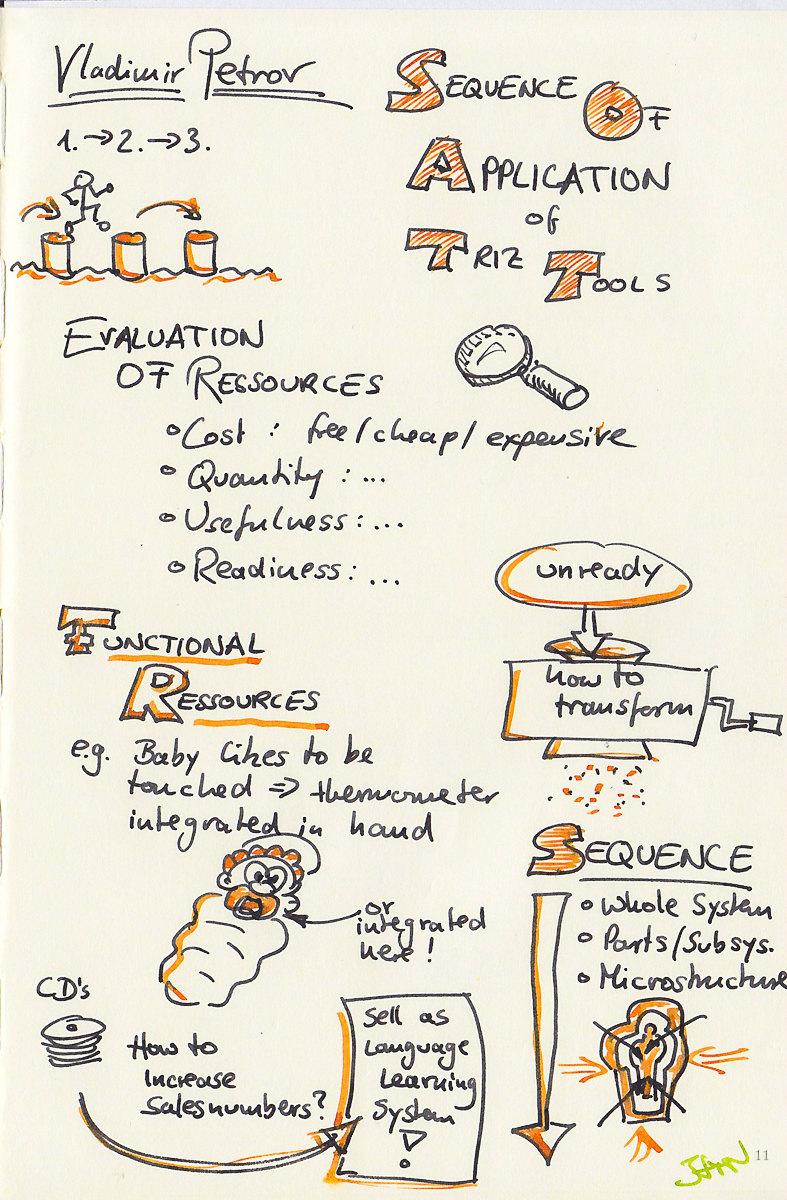 Vladimir Petrov
1. → 2. → 3.
SEQUENCE OF
APPLICATION
of
TRIZ TOOLS
EVALUATION
OF RESSOURCES
Cost : free / cheap / expensive
Quantity : ...
Usefulness : ...
Readiness : ...
unready
how to
transform
FUNCTIONAL
RESSOURCES
e.g. Baby likes to be
touched => thermometer
integrated in hand
or
integrated
here !
SEQUENCE
Whole System
Parts/Subsys.
Microstructure
CD's
How to
increase
salesnumbers?
Sell as
Language
Learning
System
!
JEAN
11